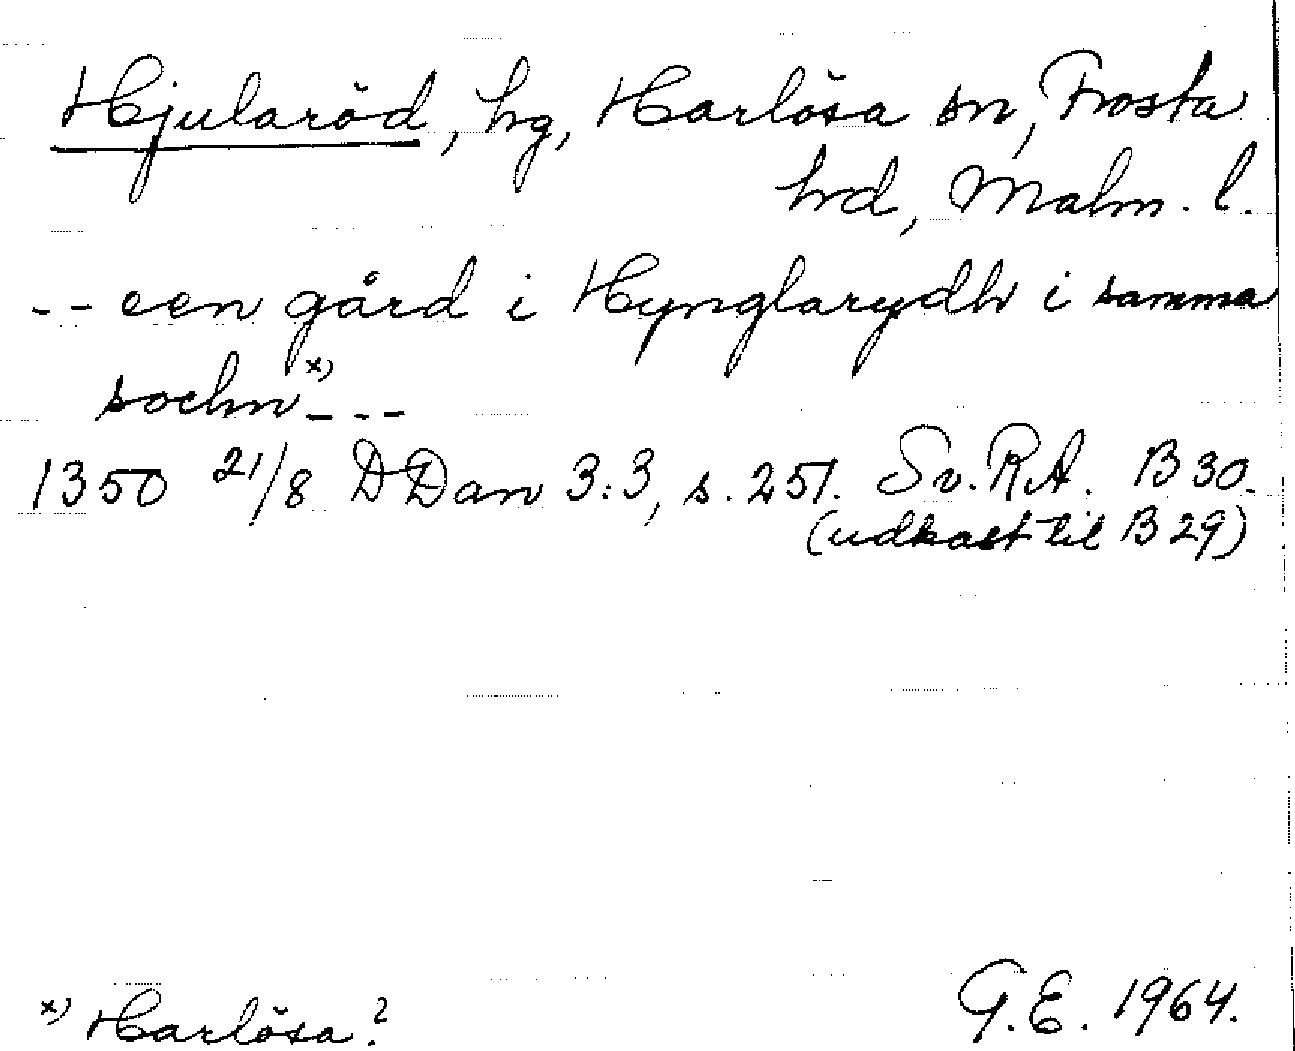 Hjularöd, hg, Harlösa sn, Frosta
hrd, Malm. l.
-- een gård i Hynglarydh i samma
sochn x) ---
1350 21/8 DDan 3:3, s. 251. Sv. RA. B 30.
(udkast til B 29)
x) Harlösa?
G.E. 1964.